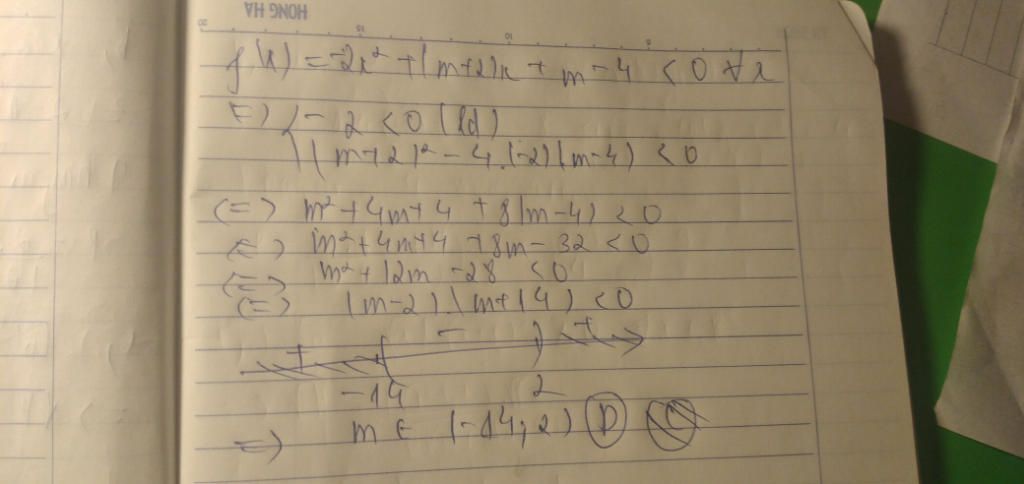 HONG HA
20 15 10 5
f(x) = -2x² + (m+2)x + m - 4 < 0 ∀x
⇔ { -2 < 0 (lđ)
(m+2)² - 4.(-2)(m-4) < 0
(=) m² + 4m + 4 + 8(m-4) < 0
(=) m² + 4m + 4 + 8m - 32 < 0
(=) m² + 12m - 28 < 0
(=) (m-2).(m+14) < 0
+ - +
-14 2
=) m ∈ (-14; 2) D C